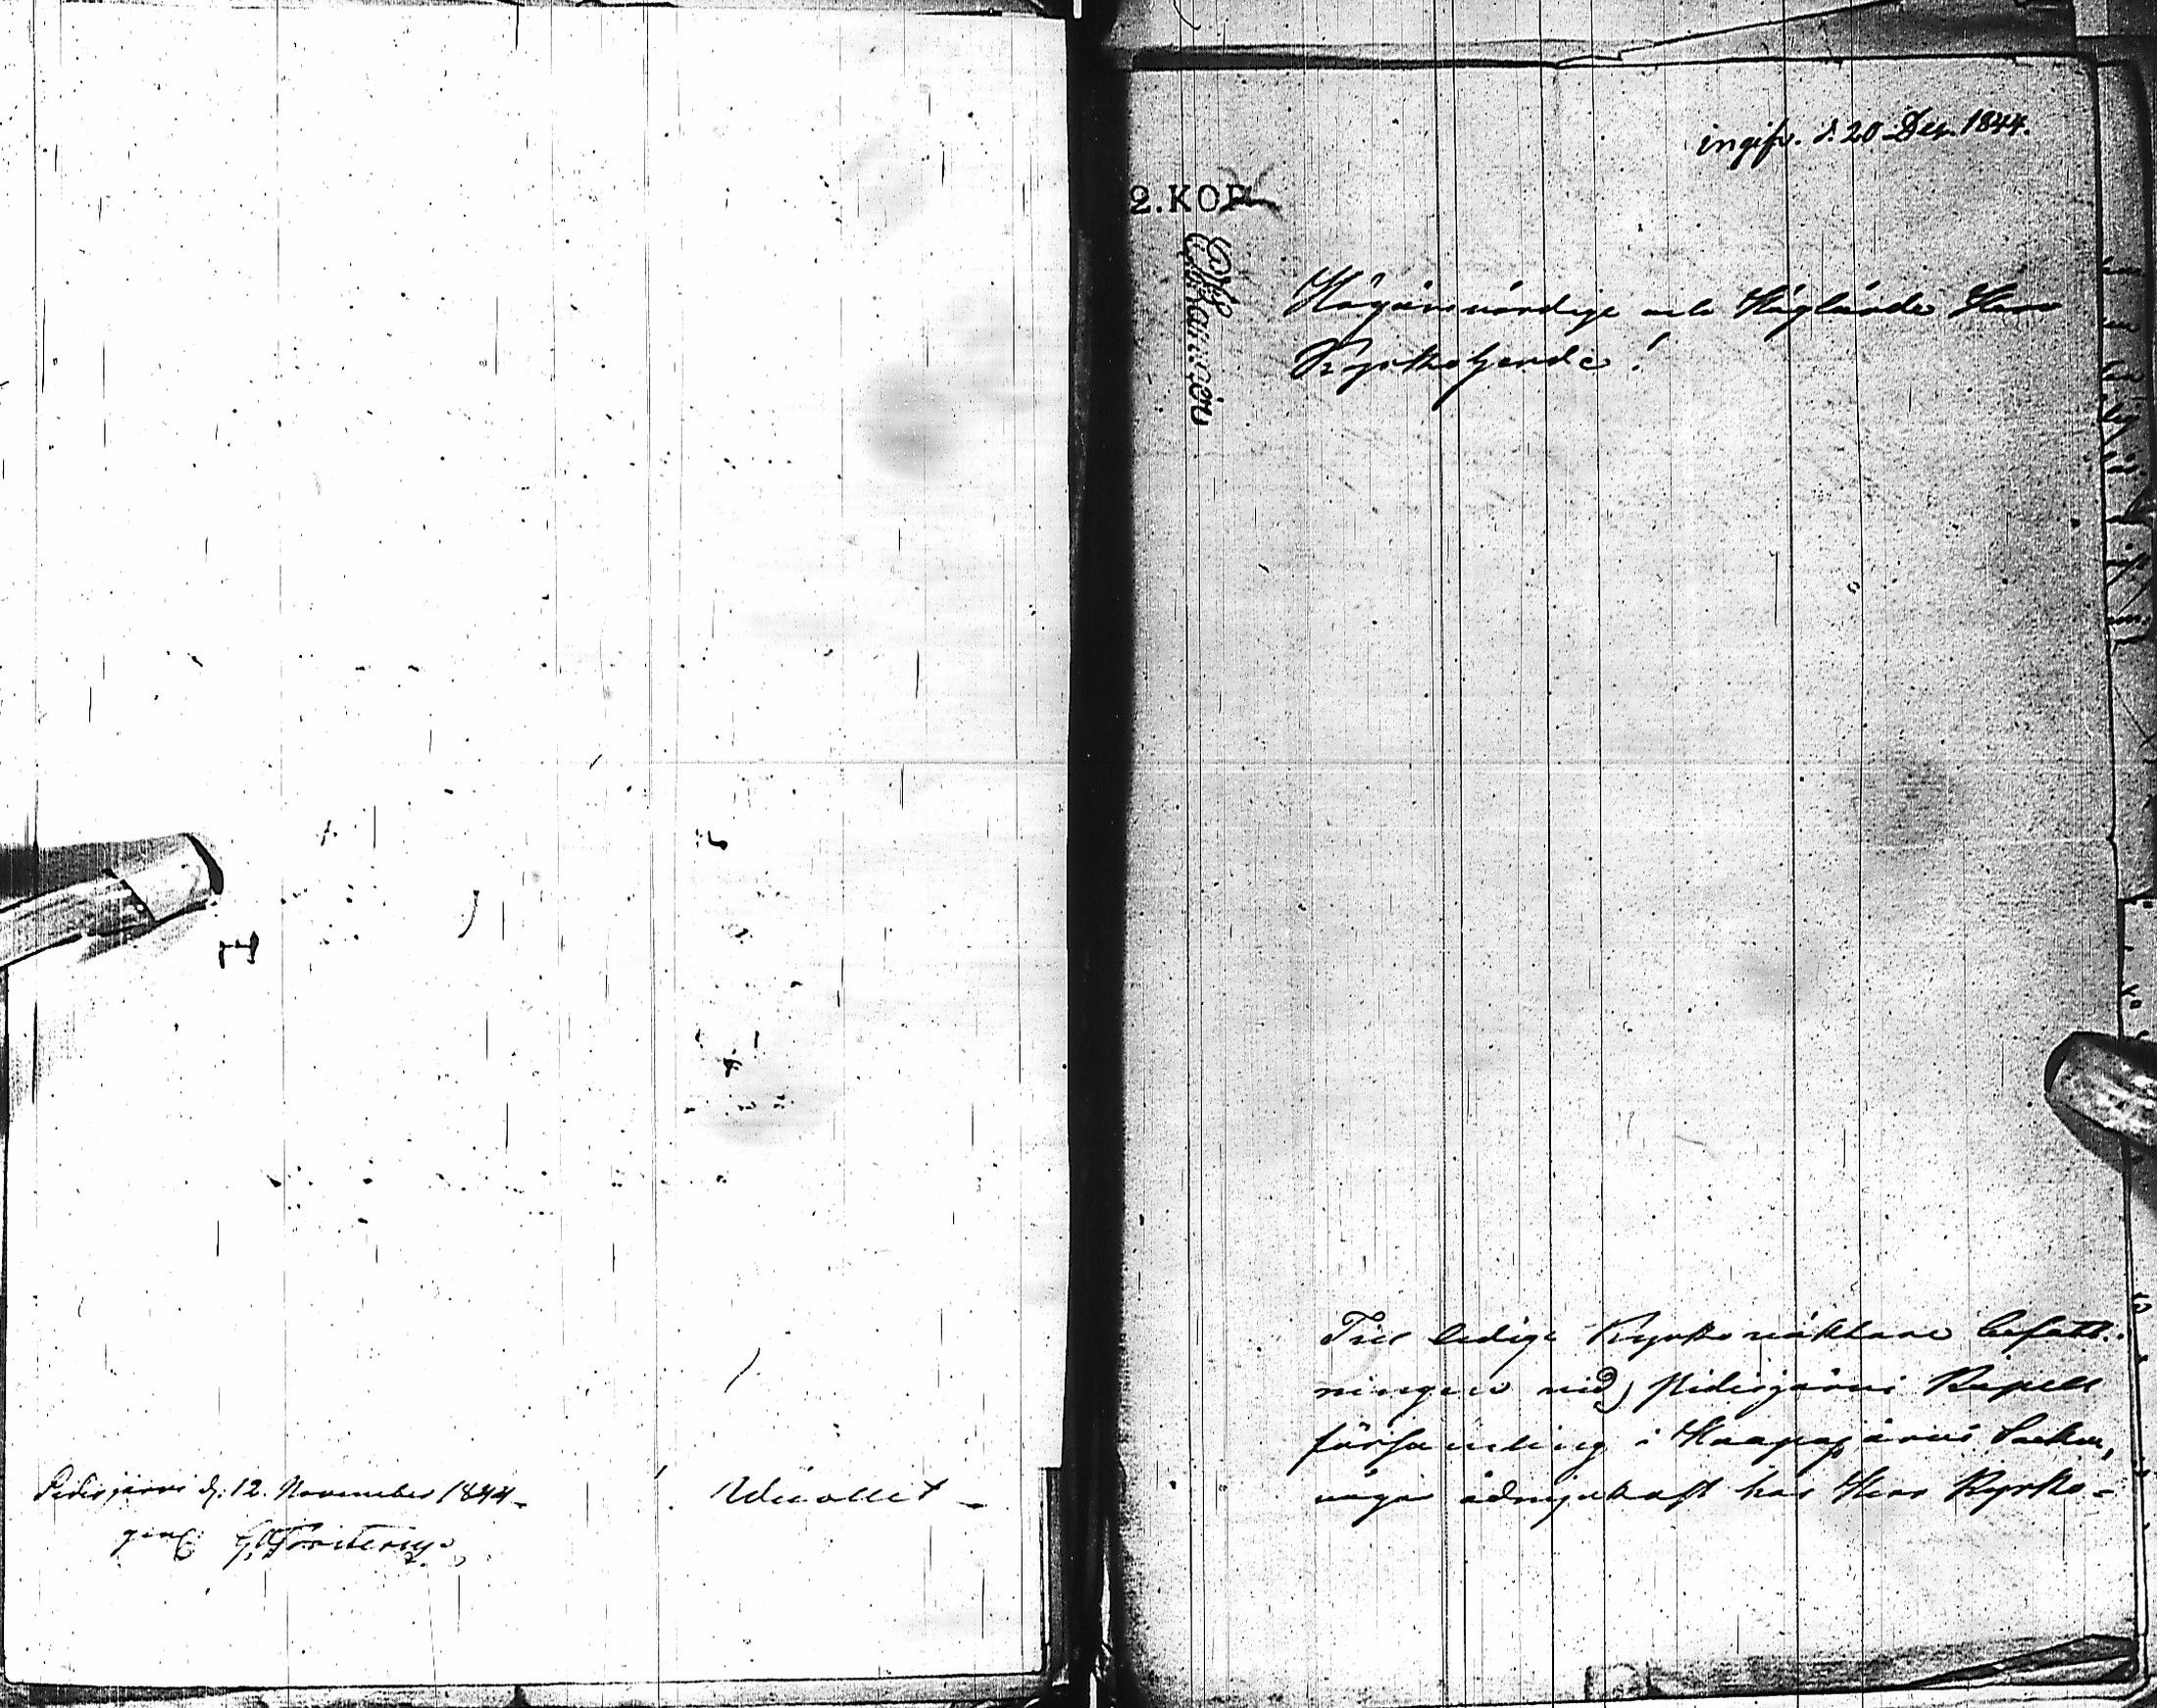 Pidisjärvi d: 12. November 1844.
G. Forsterus
ingifv. d. 20 Dec. 1844.
2.KOP
Högärevördige och Höglärde Herr
Kyrkoherde!
Till lediga Kyrkoväktare befatt-
ningen vid Pidisjärvi Kapell
församling i Haapajärvi Socken,
vågar ödmjukast hos Herr Kyrko-